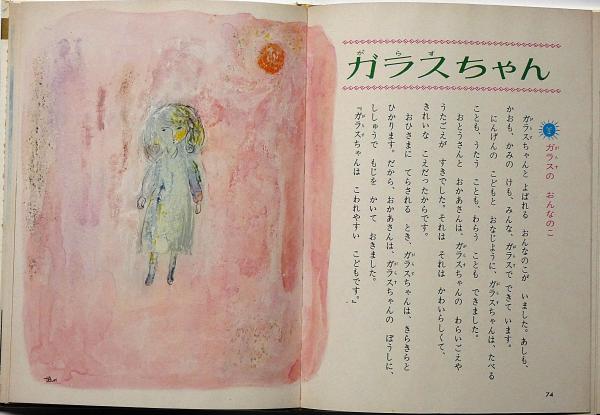 ガラスちゃん
がらす
1 ガラスの おんなのこ
がらす
ガラスちゃんと よばれる おんなのこが いました。あしも、
かおも、かみの けも、みんな、ガラスで できて います。
にんげんの こどもと おなじように、ガラスちゃんは、たべる
ことも、うたう ことも、わらう ことも できました。
おとうさんと おかあさんは、ガラスちゃんの わらいごえや
うたごえが すきでした。それは それは かわいらしくて、
きれいな こえだったからです。
おひさまに てらされる とき、ガラスちゃんは、きらきらと
ひかります。だから、おかあさんは、ガラスちゃんの ぼうしに、
ししゅうで もじを かいて おきました。
『ガラスちゃんは こわれやすい こどもです。』
74